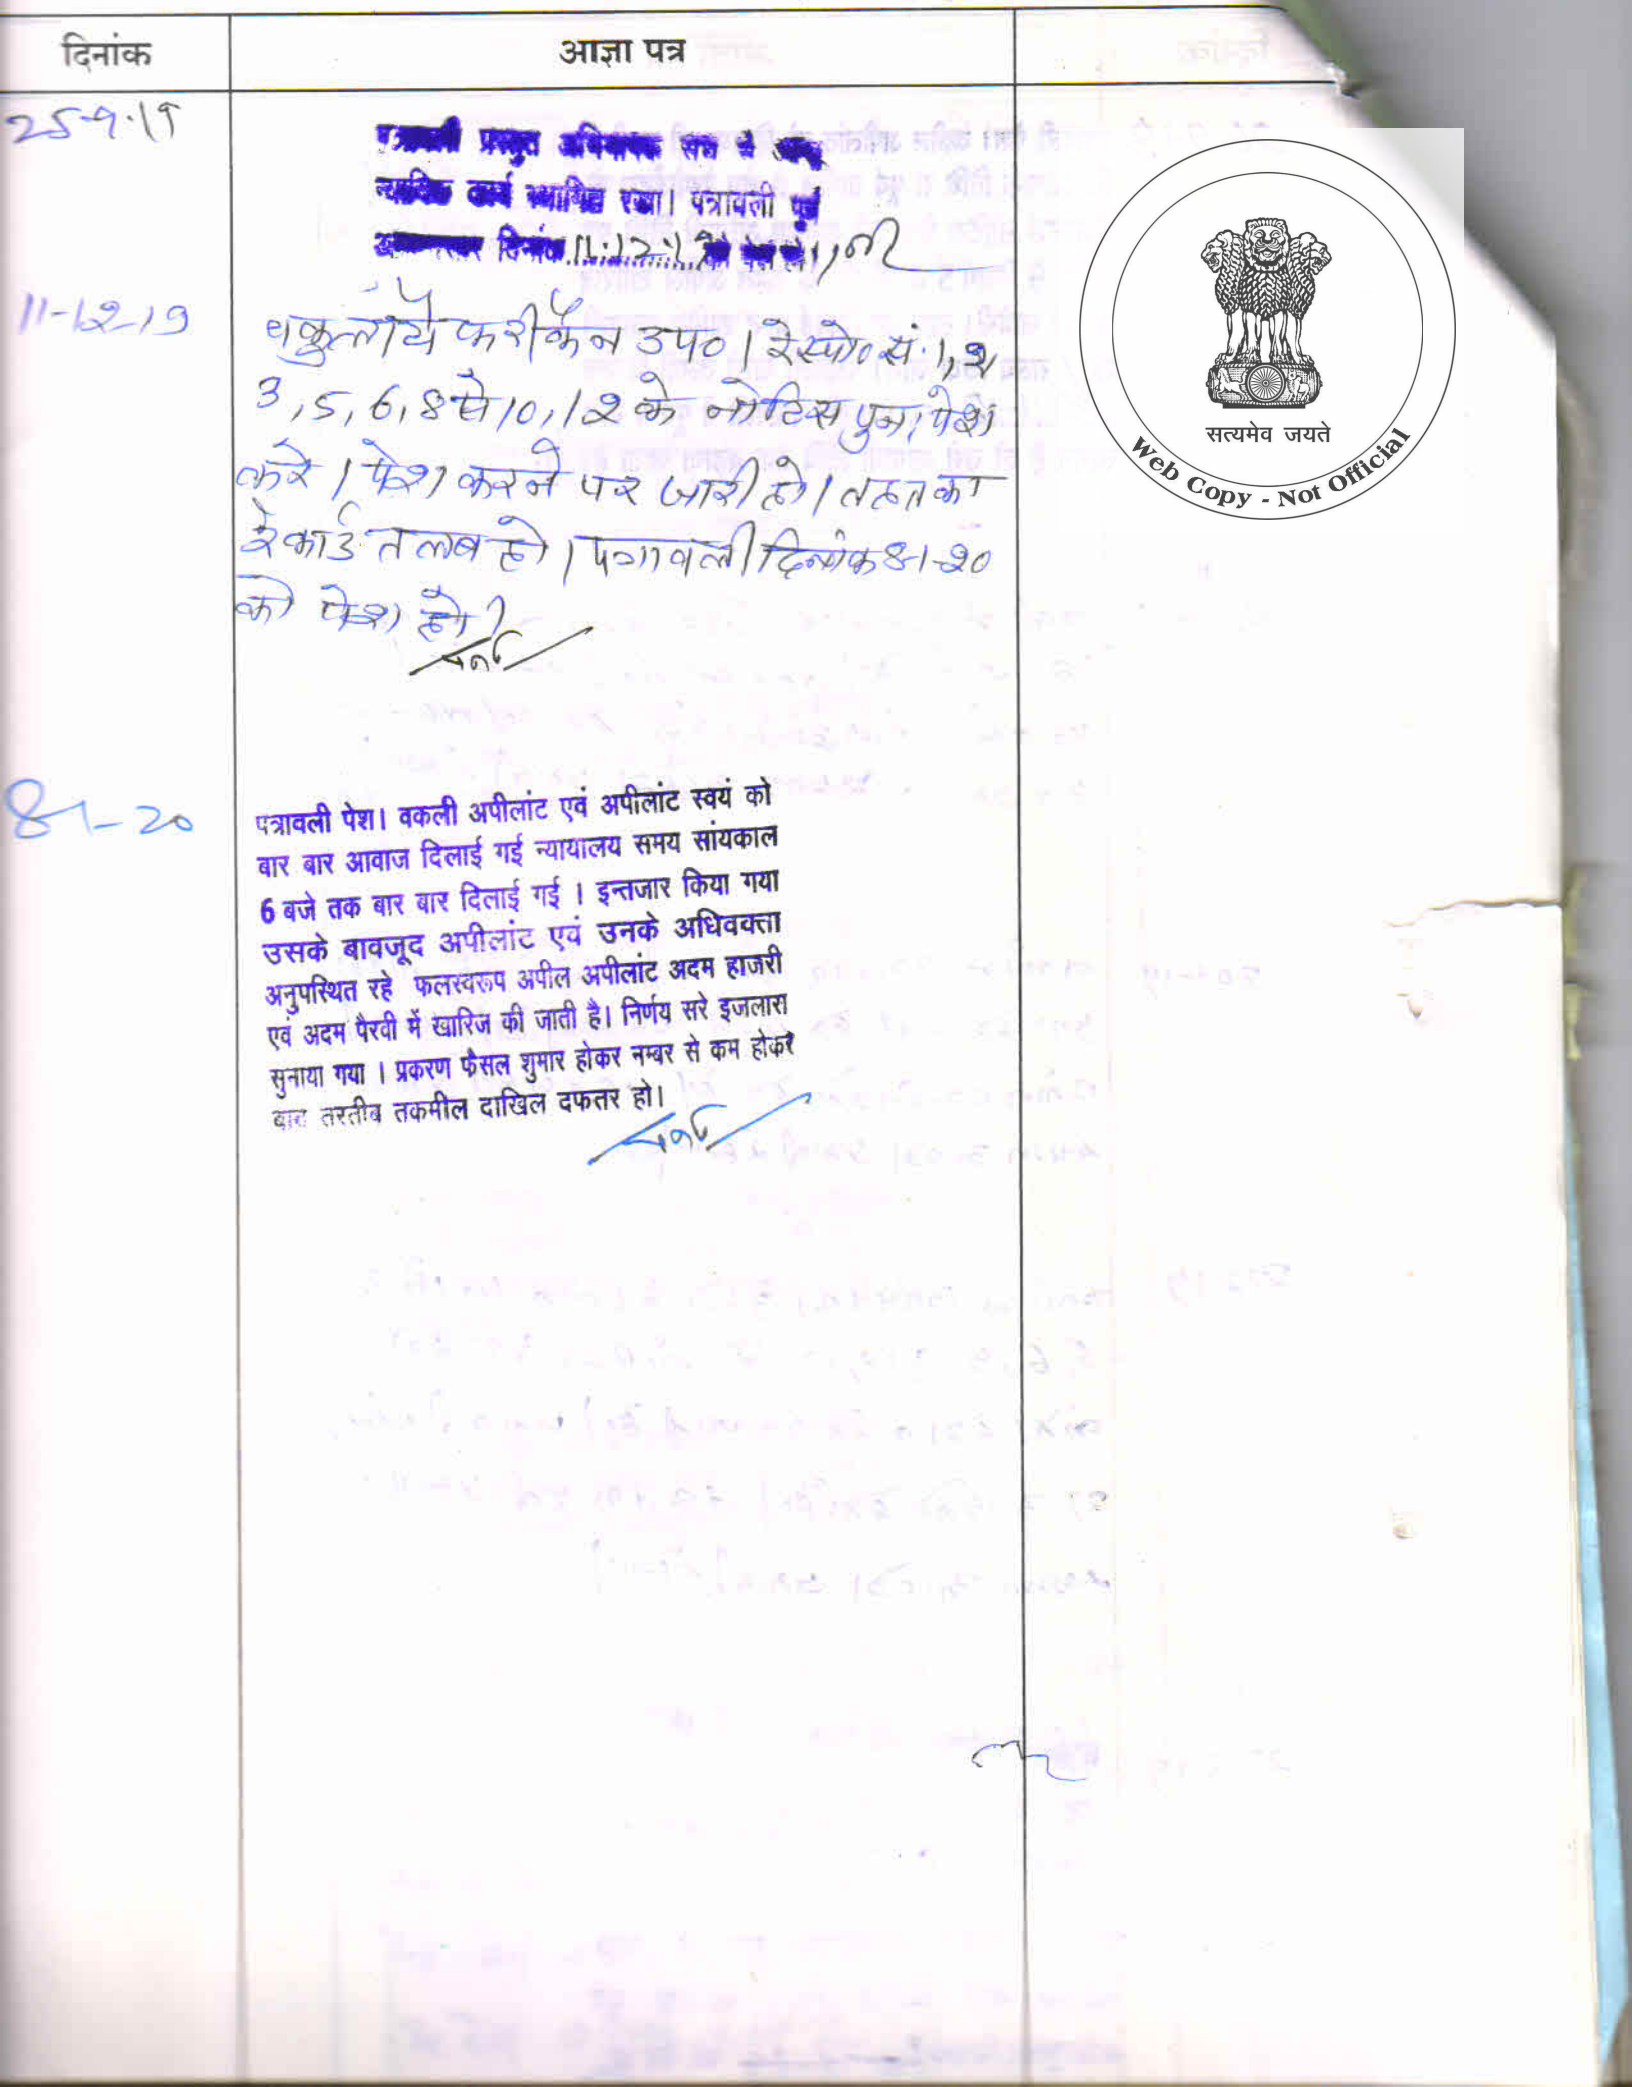 दिनांक
आज्ञा पत्र
25-9-19
पत्रावली प्रस्तुत अभिभाषक संघ ने
न्यायिक कार्य स्थगित रखा। पत्रावली पूर्व
दिनांक 11.12.19 को पेश हो।
11-12-19
वकुलाये फरीकैन उप०। रेस्पो० सं. 1, 2,
3, 5, 6, 8 से 10, 12 के नोटिस पुनः पेश
करे। पेश करने पर जारी हो। तहत का
रेकार्ड तलब हो। पत्रावली दिनांक 8-1-20
को पेश हो।
8-1-20
पत्रावली पेश। वकली अपीलांट एवं अपीलांट स्वयं को
बार बार आवाज दिलाई गई न्यायालय समय सांयकाल
6 बजे तक बार बार दिलाई गई । इन्तजार किया गया
उसके बावजूद अपीलांट एवं उनके अधिवक्ता
अनुपस्थित रहे फलस्वरूप अपील अपीलांट अदम हाजरी
एवं अदम पैरवी में खारिज की जाती है। निर्णय सरे इजलास
सुनाया गया । प्रकरण फैसल शुमार होकर नम्बर से कम होकर
बाद तरतीब तकमील दाखिल दफतर हो।
सत्यमेव जयते
Web Copy - Not Official